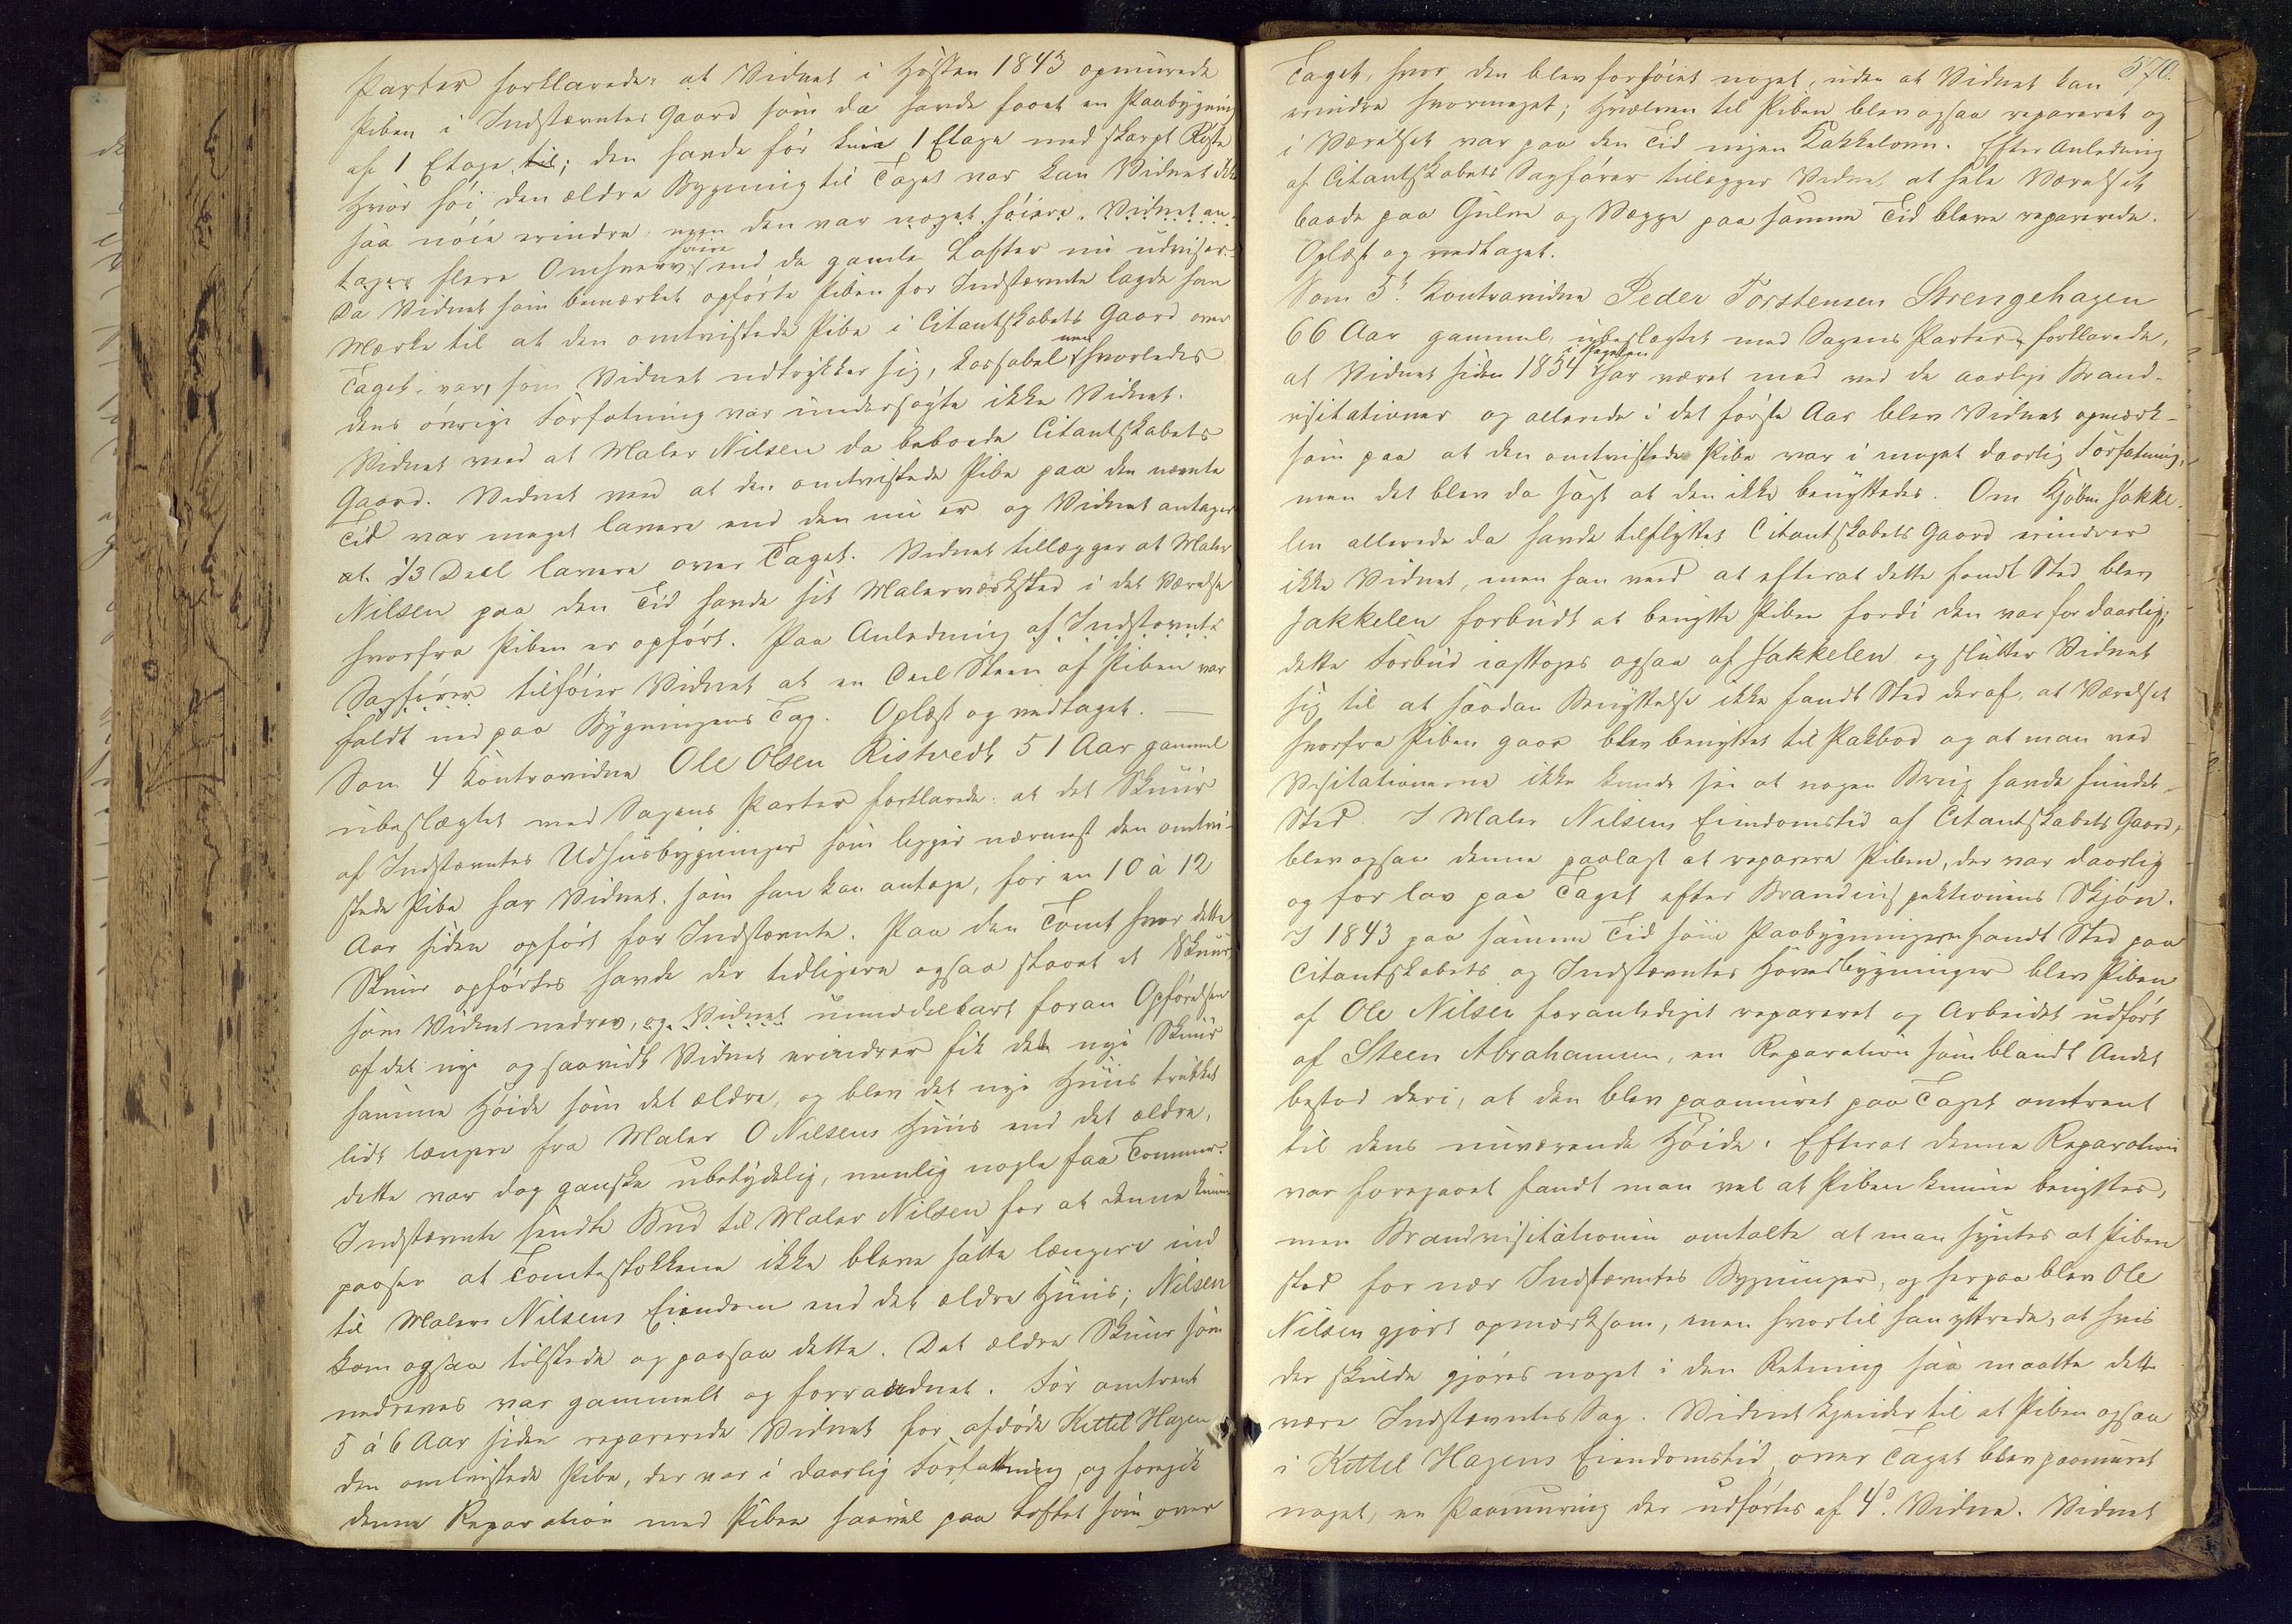 Parter forklarede: at Vidnet i Høsten 1843 opmurede
Piben i Indstævntes Gaard som da havde faaet en Paabygning
af 1 Etage, til; den havde før kun 1 Etage med skarpt Røste
Hvor høi den ældre Bygning til Taget var kan Vidnet ikke
saa nøie erindre, men den var noget høiere. Vidnet an-
tager flere Omhverv høiere end de gamle Lofter nu udviser.
Da Vidnet som bemærket opførte Piben for Indstævnte lagde han
Mærke til at den omtvistede Pibe i Citantskabets Gaard over
Taget, var, som Vidnet udtrykker sig, kassabel men hvorledes
dens øvrige Forfatning var undersøgte ikke Vidnet.
Vidnet veed at Maler Nilsen da beboede Citantskabets
Gaard. Vidnet veed at den omtvistede Pibe paa den nævnte
Tid var meget lavere end den nu er og Vidnet antager
at 1/3 Deel lavere over Taget. Vidnet tillægger at Maler
Nilsen paa den Tid havde sit Malerværksted i det Værelse
hvorfra Piben er opført. Paa Anledning af Indstævntes
Sagfører tilføier Vidnet at en Deel Steen af Piben var
faldt ned paa Bygningens Tag. Oplæst og vedtaget. —
Som 4 Kontravidne Ole Olsen Ristvedt 51 Aar gammel
ubeslægtet med Sagens Parter forklarede: at det Skuur
af Indstævntes Udhuusbygninger som ligger nærmest den omtvi-
stede Pibe har Vidnet, som han kan antage, for en 10 à 12
Aar siden opført for Indstævnte. Paa den Tomt hvor dette
Skuur opførtes havde der tidligere ogsaa staaet et Skuur
som Vidnet nedrev, og Vidnet umiddelbart foran Opførelsen
af det nye og saavidt Vidnet erindrer fik det nye Skuur
samme Høide som det ældre, og blev det nye Huus trukket
lidt længere fra Maler O Nilsens Huus end det ældre,
dette var dog ganske ubetydelig, nemlig nogle faa Tommer.
Indstævnte sendte Bud til Maler Nilsen for at denne kunne
paasee at Tomtestokkene ikke bleve satte længere ind
til Maler Nilsens Eiendom end det ældre Huus; Nilsen
kom ogsaa tilstede og paasaa dette. Det ældre Skuur som
nedreves var gammelt og forraadnet. For omtrent
5 à 6 Aar siden reparerede Vidnet for afdøde Kittel Hagen
den omtvistede Pibe, der var i daarlig Forfatning og foregik
denne Reparation med Piben saavel paa Loftet som over
570.
Taget, hvor den blev forhøiet noget, uden at Vidnet kan
erindre hvormeget; Hvælven til Piben blev ogsaa repareret og
i Værelset var paa den Tid ingen Kakkelovn. Efter Anledning
af Citantskabets Sagfører tillægger Vidnet at hele Værelset
baade paa Gulve og Vægge paa samme Tid bleve reparerede.
Oplæst og vedtaget.
Som 5t Kontravidne Peder Torstensen Strengehagen
66 Aar gammel, ubeslægtet med Sagens Parter, forklarede,
at Vidnet siden 1834 har været med ved de aarlige Brand-
visitationer og allerede i det første Aar blev Vidnet opmærk-
som paa at den omtvistede Pibe var i meget daarlig Forfatning,
men det blev da sagt at den ikke benyttedes. Om Kjøbm Jakke-
len allerede da havde tilflyttet Citantskabets Gaard erindrer
ikke Vidnet, men han veed at efterat dette fandt Sted blev
Jakkelen forbudt at benytte Piben fordi den var for daarlig;
dette Forbud iagttoges ogsaa af Jakkelen og slutter Vidnet
sig til at saadan Benyttelse ikke fandt Sted deraf, at Værelset
hvorfra Piben gaar blev benyttet til Pakbod og at man ved
Visitationerne ikke kunde see at nogen Brug havde fundet
Sted. I Maler Nilsens Eiendomstid af Citantskabets Gaard,
blev ogsaa denne paalagt at reparere Piben, der var daarlig
og for lav paa Taget efter Brandinspektionens Skjøn.
I 1843 paa samme Tid som Paabygningerne fandt Sted paa
Citantskabets og Indstævntes Hovedbygninger blev Piben
af Ole Nilsen foranlediget repareret og Arbeidet udført
af Steen Abrahamsen, en Reparation som blandt Andet
bestod deri, at den blev paamuret paa Taget omtrent
til dens nuværende Høide. Efterat denne Reparation
var foregaaet fandt man vel at Piben kunne benyttes,
men Brandvisitationen omtalte at man syntes at Piben
stod for nær Indstævntes Bygninger, og herpaa blev Ole
Nilsen gjort opmærksom, men hvortil han yttrede, at hvis
der skulde gjøres noget i den Retning saa maatte dette
være Indstævntes Sag. Vidnet kjender til at Piben ogsaa
i Kittel Hagens Eiendomstid over Taget blev paamuret
noget, en Paamuring der udførtes af 4de Vidne. Vidnet